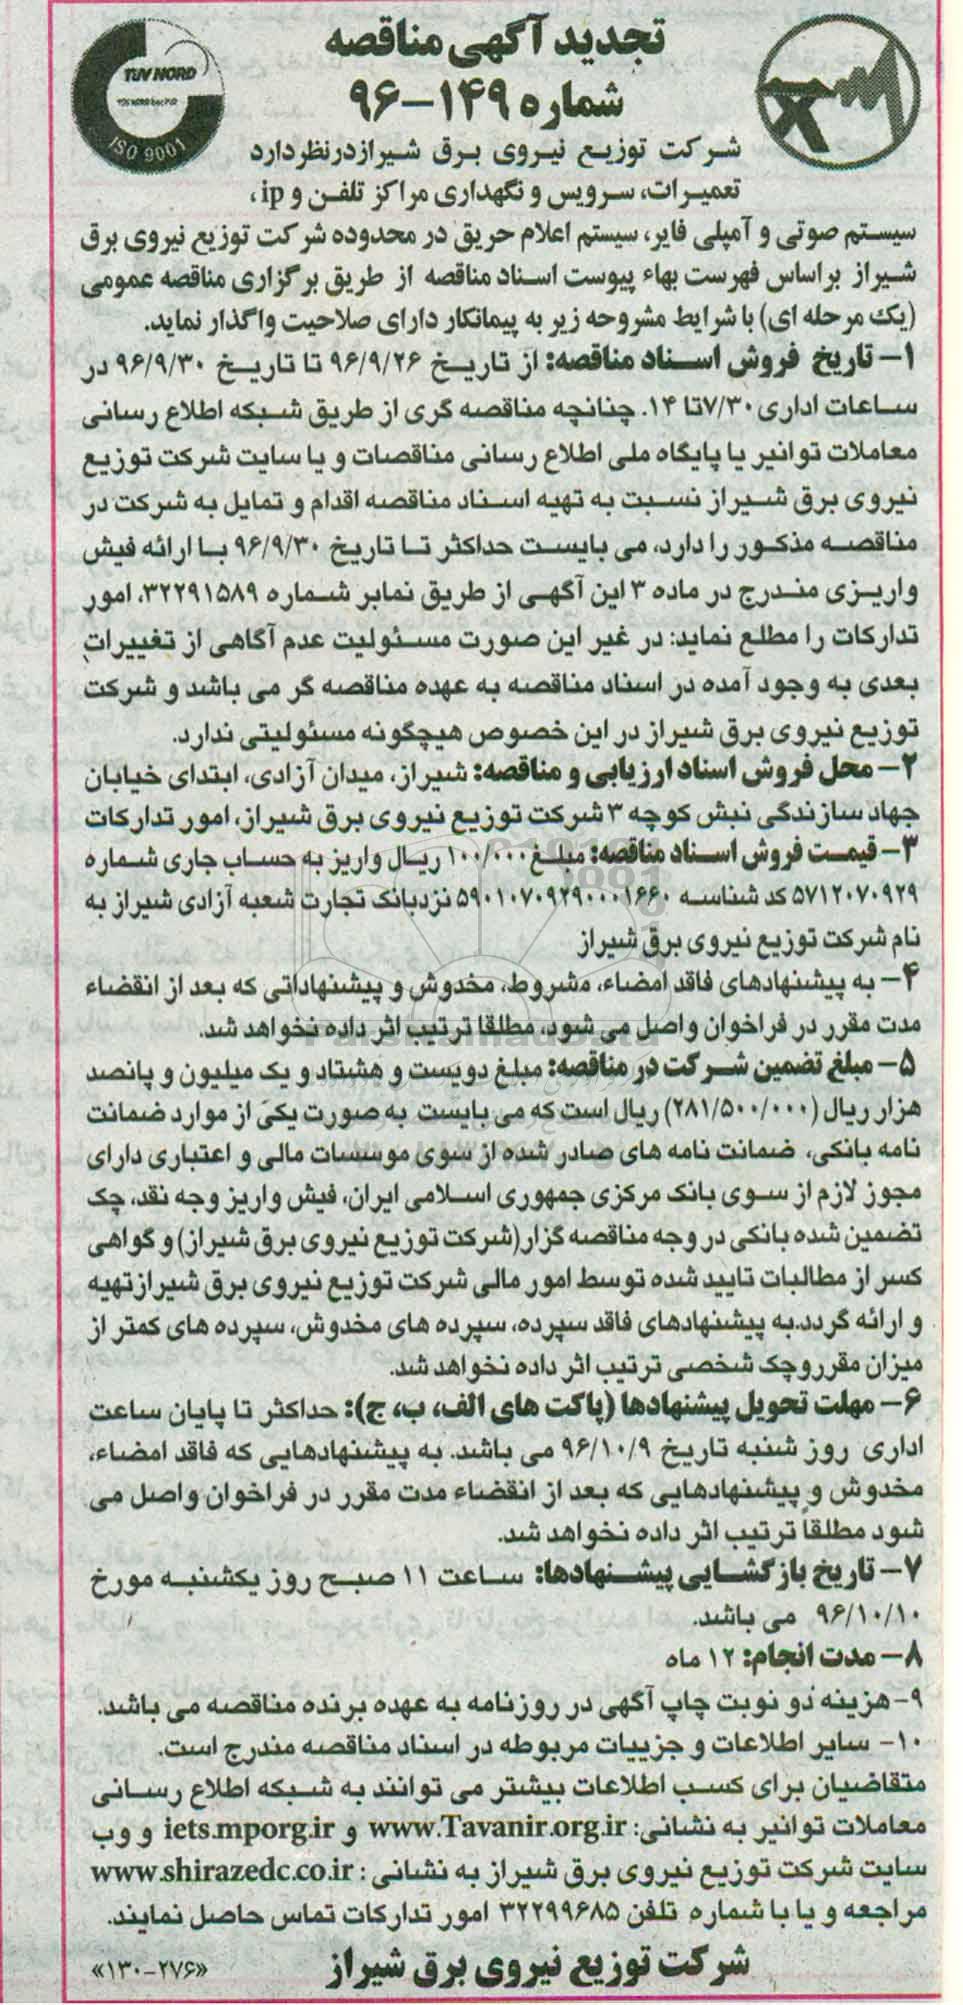 تجدید آگهی مناقصه
شماره ۱۴۹-۹۶
TUV NORD
ISO 9001
شرکت توزیع نیروی برق شیراز درنظر دارد
تعمیرات، سرویس و نگهداری مراکز تلفن و ip،
سیستم صوتی و آمپلی فایر، سیستم اعلام حریق در محدوده شرکت توزیع نیروی برق
شیراز براساس فهرست بهاء پیوست اسناد مناقصه از طریق برگزاری مناقصه عمومی
(یک مرحله ای) با شرایط مشروحه زیر به پیمانکار دارای صلاحیت واگذار نماید.
۱- تاریخ فروش اسناد مناقصه: از تاریخ ۹۶/۹/۲۶ تا تاریخ ۹۶/۹/۳۰ در
ساعات اداری ۷/۳۰ تا ۱۴. چنانچه مناقصه گری از طریق شبکه اطلاع رسانی
معاملات توانیر یا پایگاه ملی اطلاع رسانی مناقصات و یا سایت شرکت توزیع
نیروی برق شیراز نسبت به تهیه اسناد مناقصه اقدام و تمایل به شرکت در
مناقصه مذکور را دارد، می بایست حداکثر تا تاریخ ۹۶/۹/۳۰ با ارائه فیش
واریزی مندرج در ماده ۳ این آگهی از طریق نمابر شماره ۳۲۲۹۱۵۸۹، امور
تدارکات را مطلع نماید: در غیر این صورت مسئولیت عدم آگاهی از تغییرات
بعدی به وجود آمده در اسناد مناقصه به عهده مناقصه گر می باشد و شرکت
توزیع نیروی برق شیراز در این خصوص هیچگونه مسئولیتی ندارد.
۲- محل فروش اسناد ارزیابی و مناقصه: شیراز، میدان آزادی، ابتدای خیابان
جهاد سازندگی نبش کوچه ۳ شرکت توزیع نیروی برق شیراز، امور تدارکات
۳- قیمت فروش اسناد مناقصه: مبلغ ۱۰۰/۰۰۰ ریال واریز به حساب جاری شماره
۵۷۱۲۰۷۰۹۲۹ کد شناسه ۵۹۰۱۰۷۰۹۲۹۰۰۰۱۶۶۰ نزد بانک تجارت شعبه آزادی شیراز به
نام شرکت توزیع نیروی برق شیراز
۴- به پیشنهادهای فاقد امضاء، مشروط، مخدوش و پیشنهاداتی که بعد از انقضاء
مدت مقرر در فراخوان واصل می شود، مطلقا ترتیب اثر داده نخواهد شد.
ParsNamadData
۵- مبلغ تضمین شرکت در مناقصه: مبلغ دویست و هشتاد و یک میلیون و پانصد
هزار ریال (۲۸۱/۵۰۰/۰۰۰) ریال است که می بایست به صورت یکی از موارد ضمانت
نامه بانکی، ضمانت نامه های صادر شده از سوی موسسات مالی و اعتباری دارای
مجوز لازم از سوی بانک مرکزی جمهوری اسلامی ایران، فیش واریز وجه نقد، چک
تضمین شده بانکی در وجه مناقصه گزار (شرکت توزیع نیروی برق شیراز) و گواهی
کسر از مطالبات تایید شده توسط امور مالی شرکت توزیع نیروی برق شیراز تهیه
و ارائه گردد. به پیشنهادهای فاقد سپرده، سپرده های مخدوش، سپرده های کمتر از
میزان مقرر و چک شخصی ترتیب اثر داده نخواهد شد.
۶- مهلت تحویل پیشنهادها (پاکت های الف، ب، ج): حداکثر تا پایان ساعت
اداری روز شنبه تاریخ ۹۶/۱۰/۹ می باشد. به پیشنهادهایی که فاقد امضاء،
مخدوش و پیشنهادهایی که بعد از انقضاء مدت مقرر در فراخوان واصل می
شود مطلقاً ترتیب اثر داده نخواهد شد.
۷- تاریخ بازگشایی پیشنهادها: ساعت ۱۱ صبح روز یکشنبه مورخ
۹۶/۱۰/۱۰ می باشد.
۸- مدت انجام: ۱۲ ماه
۹- هزینه دو نوبت چاپ آگهی در روزنامه به عهده برنده مناقصه می باشد.
۱۰- سایر اطلاعات و جزییات مربوطه در اسناد مناقصه مندرج است.
متقاضیان برای کسب اطلاعات بیشتر می توانند به شبکه اطلاع رسانی
معاملات توانیر به نشانی: www.Tavanir.org.ir و iets.mporg.ir و وب
سایت شرکت توزیع نیروی برق شیراز به نشانی: www.shirazedc.co.ir
مراجعه و یا با شماره تلفن ۳۲۲۹۹۶۸۵ امور تدارکات تماس حاصل نمایند.
شرکت توزیع نیروی برق شیراز
«۱۳۰-۲۷۶»